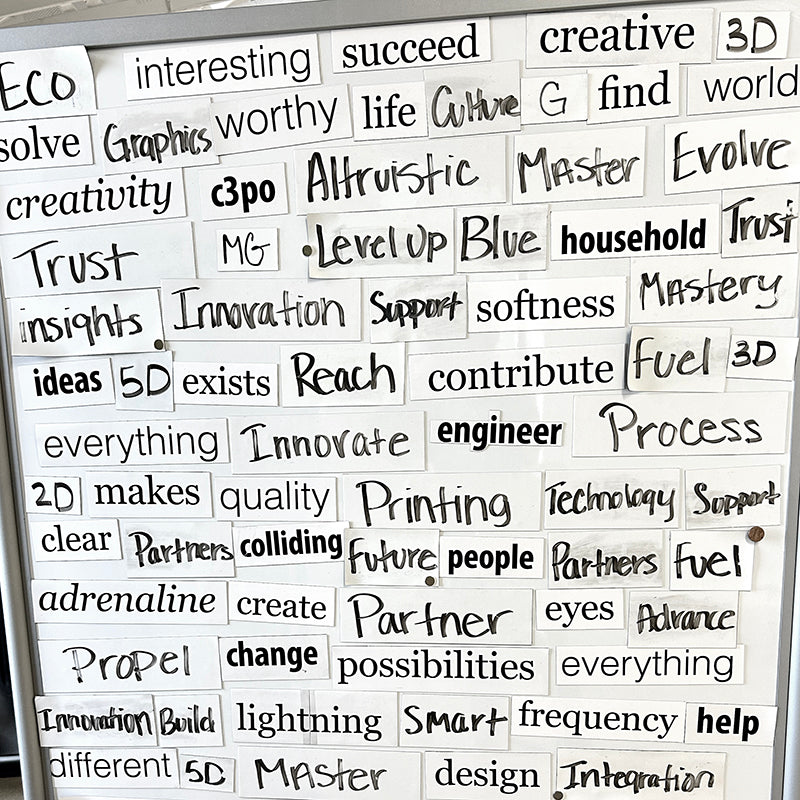 Eco interesting succeed creative 3D
solve Graphics worthy life Culture G find world
creativity c3po Altruistic Master Evolve
Trust MG Level Up Blue household Trust
insights Innovation Support softness Mastery
ideas 5D exists Reach contribute Fuel 3D
everything Innovate engineer Process
2D makes quality Printing Technology Support
clear Partners colliding Future people Partners Fuel
adrenaline create Partner eyes Advance
Propel change possibilities everything
Innovation Build lightning Smart frequency help
different 5D Master design Integration